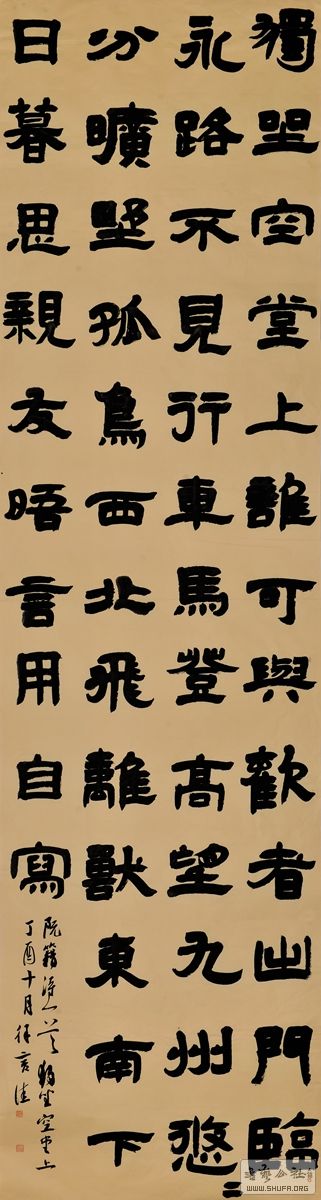 獨坐空堂上誰可與歡者出門臨
永路不見行車馬登高望九州悠〻
分曠野孤鳥西北飛離獸東南下
日暮思親友晤言用自寫
阮籍詩一首獨坐空堂上
丁酉十月徐
WWW.SHUFA.ORG